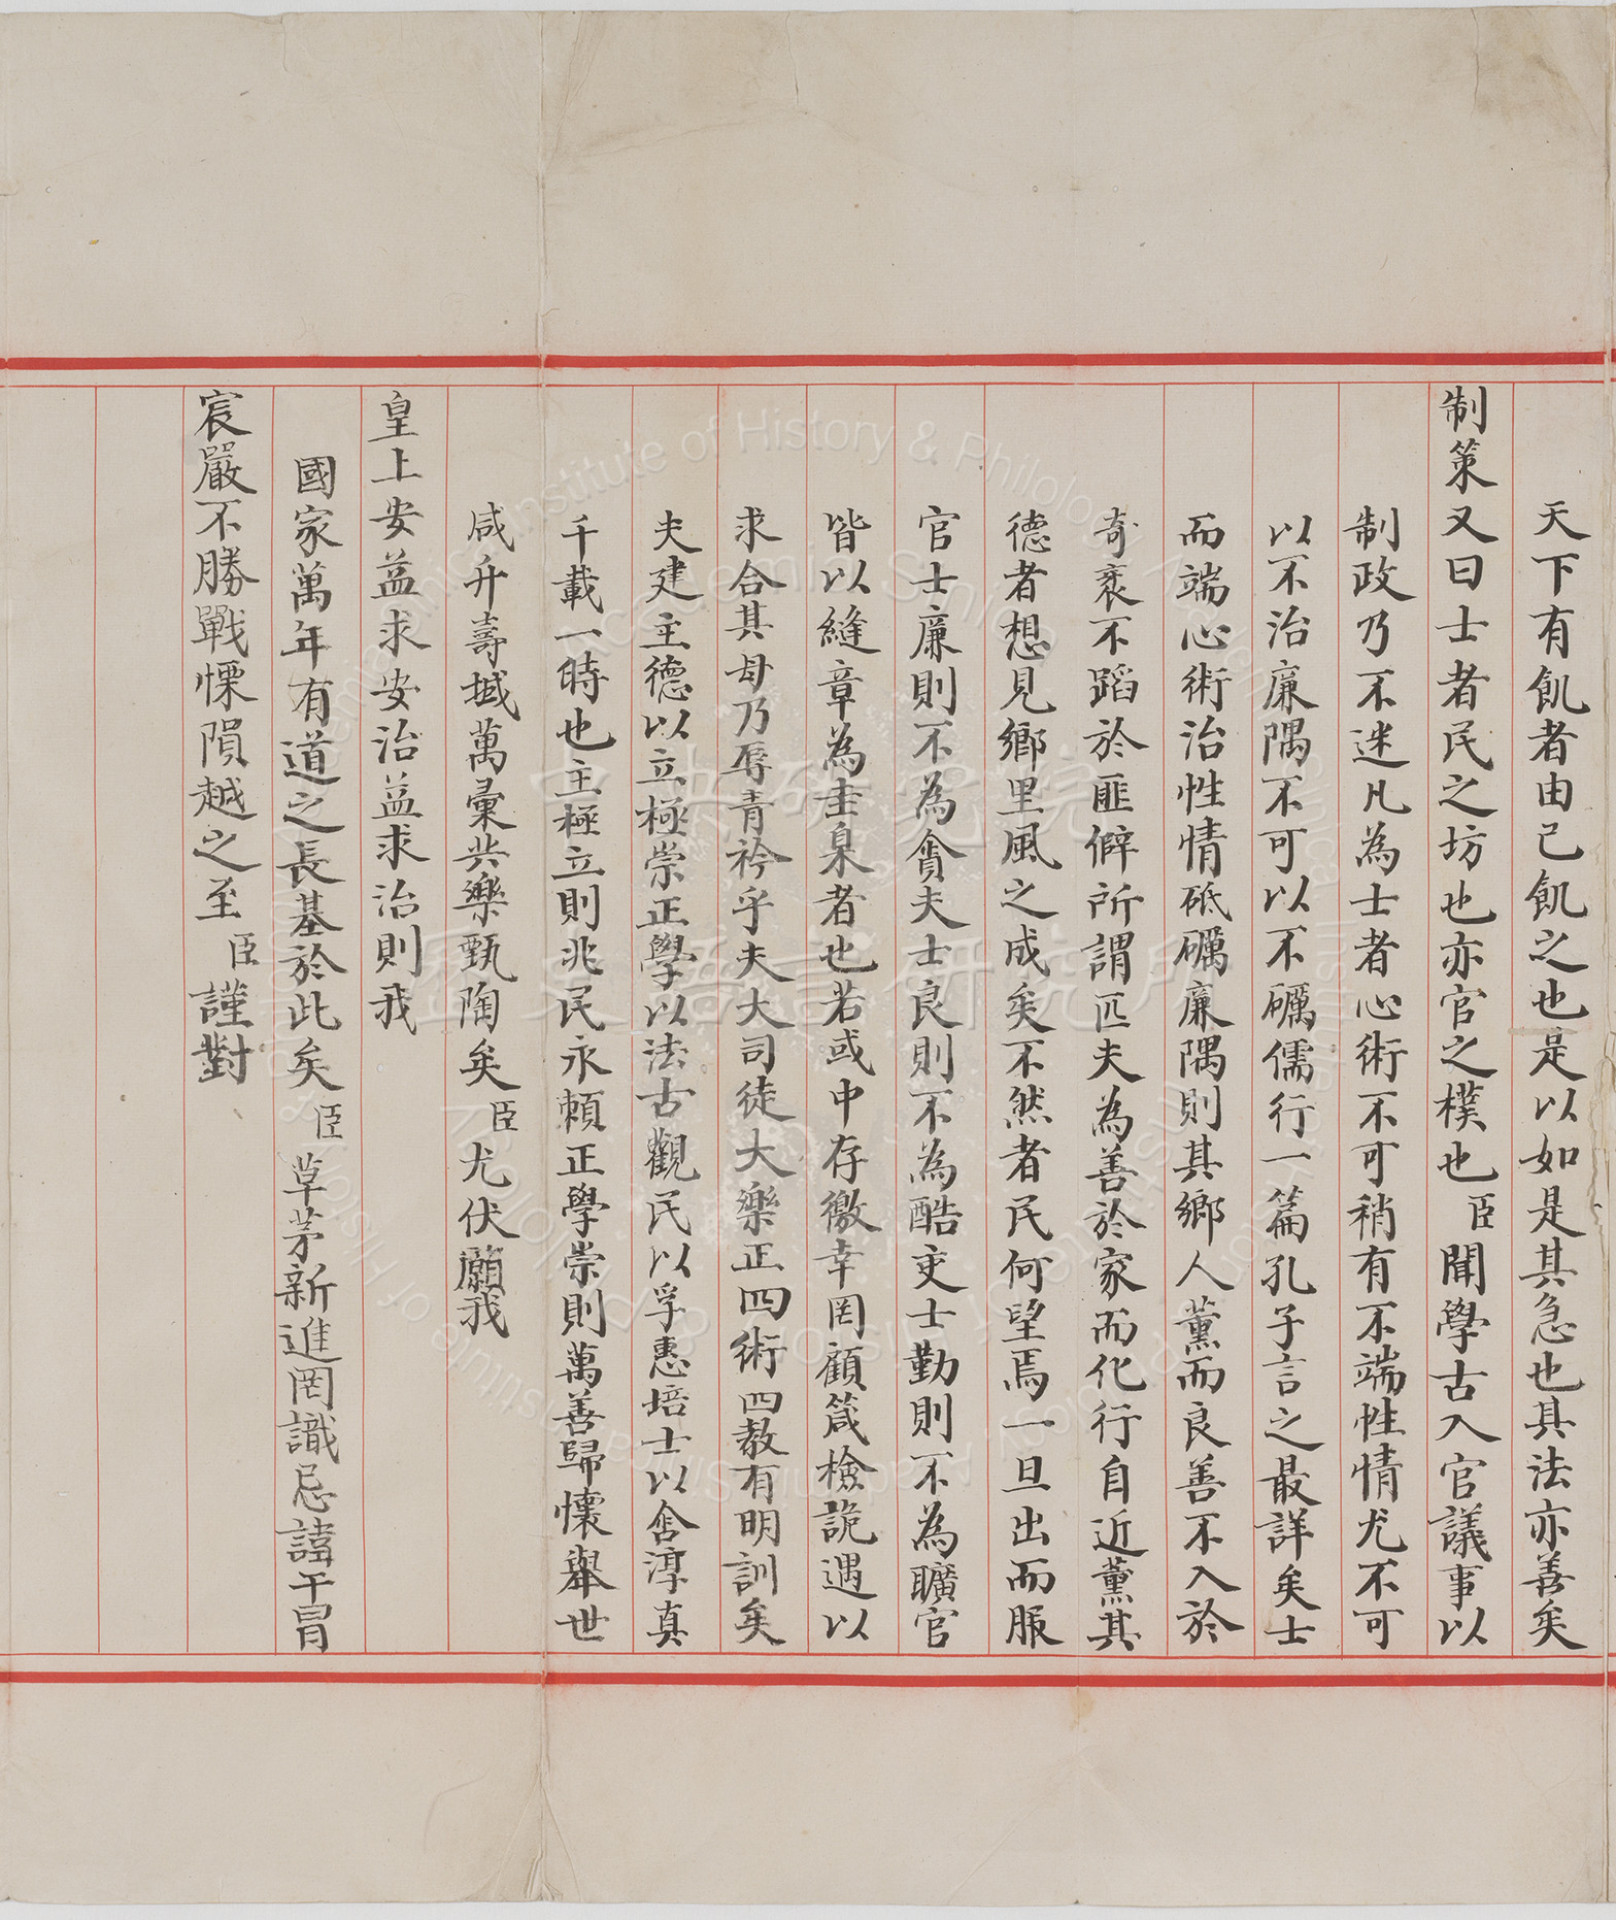 天下有飢者由己飢之也是以如是其急也其法亦善矣
制策又曰士者民之坊也亦官之樸也臣聞學古入官議事以
制政乃不迷凡為士者心術不可稍有不端性情尤不可
以不治廉隅不可以不礪儒行一篇孔子言之最詳矣士
而端心術治性情砥礪廉隅則其鄉人薰而良善不入於
奇衺不蹈於匪僻所謂匹夫為善於家而化行自近薰其
德者想見鄉里風之成矣不然者民何望焉一旦出而服
官士廉則不為貪夫士良則不為酷吏士勤則不為曠官
皆以縫章為圭臬者也若或中存徼幸罔顧箴檢詭遇以
求合其毋乃辱青衿乎夫大司徒大樂正四術四教有明訓矣
夫建主德以立極崇正學以法古觀民以孚惠培士以含淳真
千載一時也主極立則兆民永賴正學崇則萬善歸懷舉世
咸升壽域萬彙共樂甄陶矣臣尤伏願我
皇上安益求安治益求治則我
國家萬年有道之長基於此矣臣草茅新進罔識忌諱干冒
宸嚴不勝戰慄隕越之至臣謹對